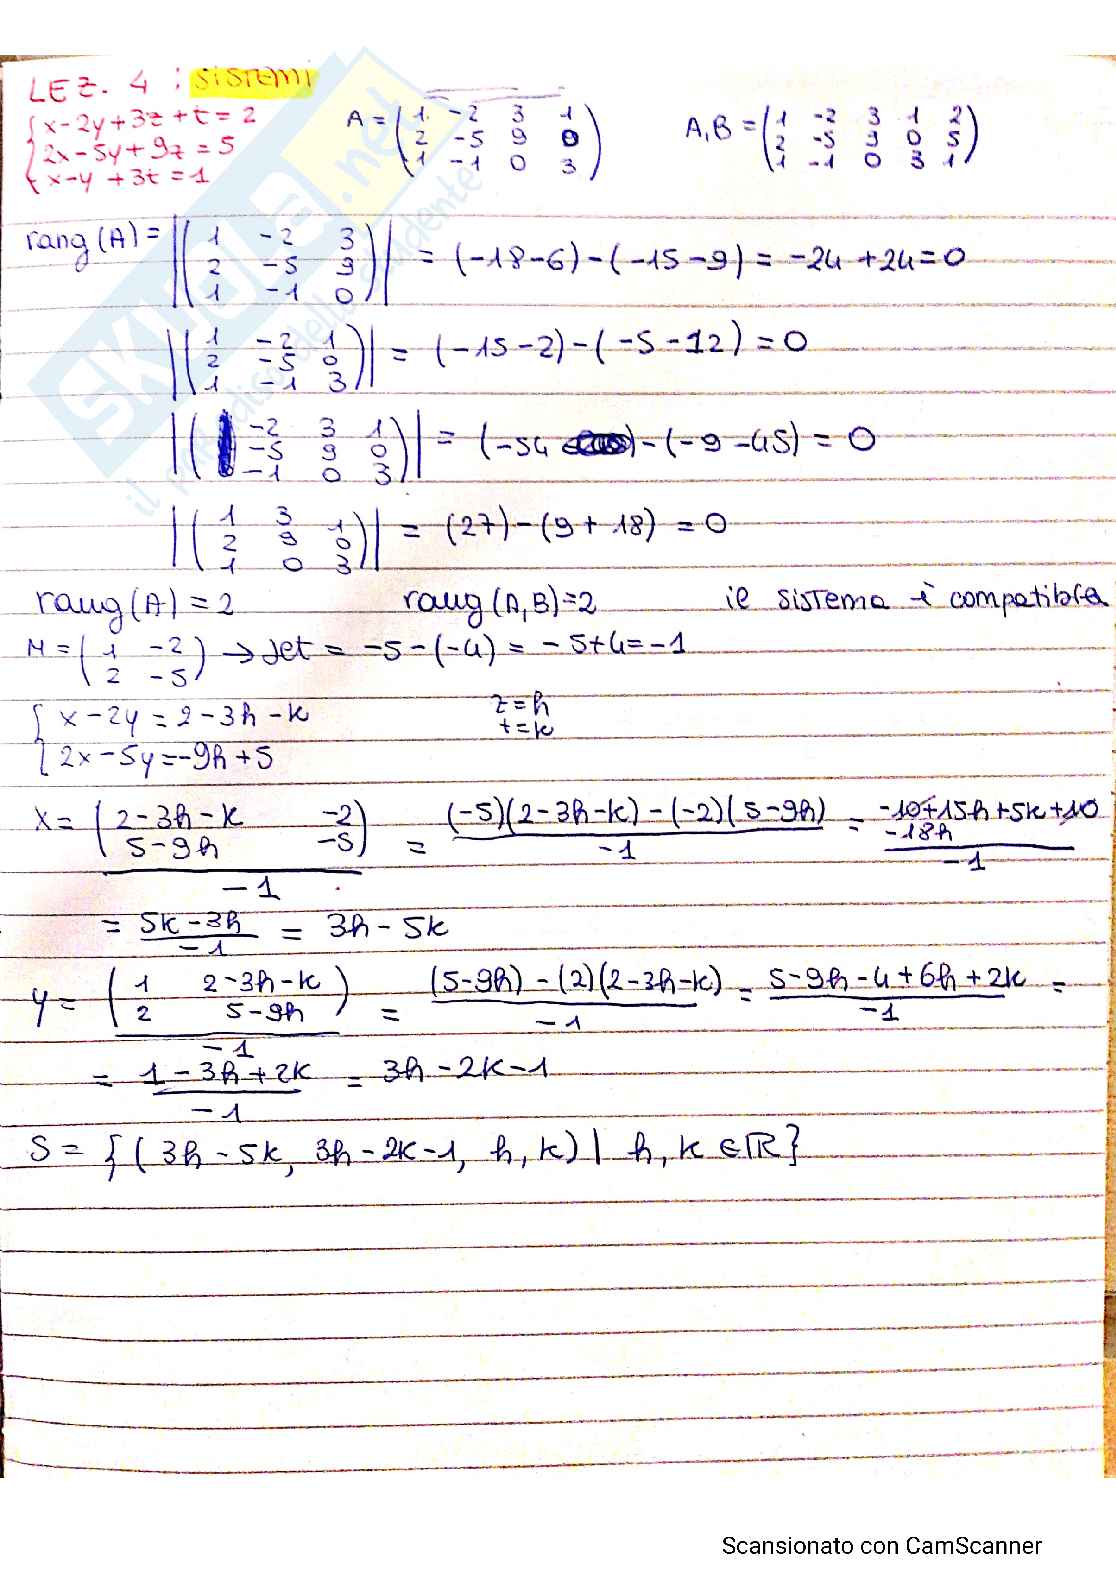 LEZ. 4 : SISTEMI
{ x-2y+3z+t=2
2x-5y+9z=5
x-y+3t=1
A = ( 1 -2 3 1
2 -5 9 0
1 -1 0 3 )
A,B = ( 1 -2 3 1 2
2 -5 9 0 5
1 -1 0 3 1 )
rang(A) = |( 1 -2 3
2 -5 9
1 -1 0 )| = (-18-6)-(-15-9) = -24+24=0
|( 1 -2 1
2 -5 0
1 -1 3 )| = (-15-2)-(-5-12) = 0
|( -2 3 1
-5 9 0
-1 0 3 )| = (-54)-(-9-45) = 0
|( 1 3 1
2 9 0
1 0 3 )| = (27)-(9+18) = 0
rang(A)=2 rang(A,B)=2 il sistema è compatibile
M = ( 1 -2
2 -5 ) → det = -5-(-4) = -5+4=-1
{ x-2y=2-3h-k
2x-5y=-9h+5
z=h
t=k
X = ( 2-3h-k -2
5-9h -5 ) / -1 = (-5)(2-3h-k)-(-2)(5-9h) / -1 = -10+15h+5k+10 -18h / -1
= 5k-3h / -1 = 3h-5k
y = ( 1 2-3h-k
2 5-9h ) / -1 = (5-9h)-(2)(2-3h-k) / -1 = 5-9h-4+6h+2k / -1 =
= 1-3h+2k / -1 = 3h-2k-1
S = {(3h-5k, 3h-2k-1, h, k) | h, k ∈ ℝ}
SKUOLA.net
il paradiso dello studente
Scansionato con CamScanner